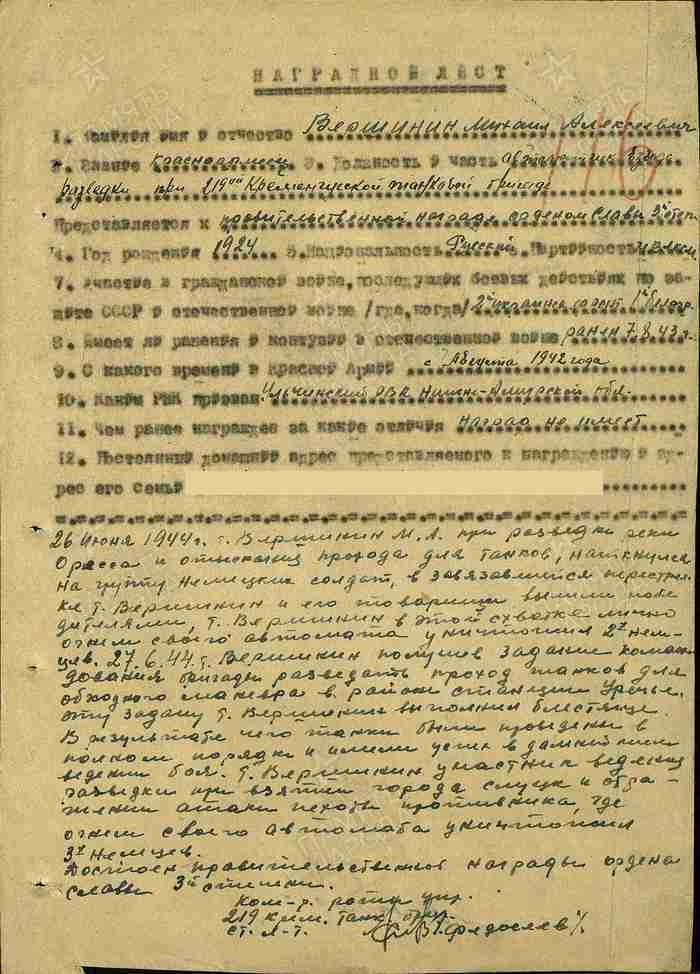 НАГРАДНОЙ ЛИСТ
1. Фамилия имя и отчество Вершинин Михаил Алексеевич
2. Звание красноармеец 3. Должность и часть автоматчик взвода
разведки при 219ой Кременчугской танковой бригаде
Представляется к правительственной награде орденом Славы 3й степ.
4. Год рождения 1924 5. Национальность Русский. Партийность чл. ВЛКСМ
7. Участие в гражданской войне, последующих боевых действиях по за-
щите СССР и отечественной войне /где, когда/ 2й украинс. фронт. 1й белор.
8. Имеет ли ранения и контузии в отечественной войне ранен 7.8.43 г.
9. С какого времени в Красной Армии с Августа 1942 года
10. Каким РВК призван РВК Нижне-Амурской обл.
11. Чем ранее награжден за какие отличия наград не имеет
12. Постоянный домашний адрес представляемого к награждению и ад-
рес его семьи
26 июня 1944 г. т. Вершинин М. А. при разведки реки
Оресса и отыскания прохода для танков, наткнулся
на группу немецких солдат, в завязавшийся перестрел-
ке т. Вершинин и его товарищи вышли побе
дителями, т. Вершинин в этой схватке лично
огнем своего автомата уничтожил 2х нем-
цев. 27.6.44 т. Вершинин получив задание коман
дования бригады разведать проход танков для
обходного маневра в районе станции Уречье,
эту задачу т. Вершинин выполнил блестяще.
В результате чего танки были проведены в
полном порядке и имели успех в дальнейшем
ведении боя. т. Вершинин участник ведения
разведки при взятии города Слуцк и отра-
жении атаки пехоты противника, где
огнем своего автомата уничтожил
3х немцев.
Достоин правительственной награды ордена
славы 3й степени.
Ком-р. роты упр.
219 крем. танк. бриг.
ст. л-т. Федосеев
116